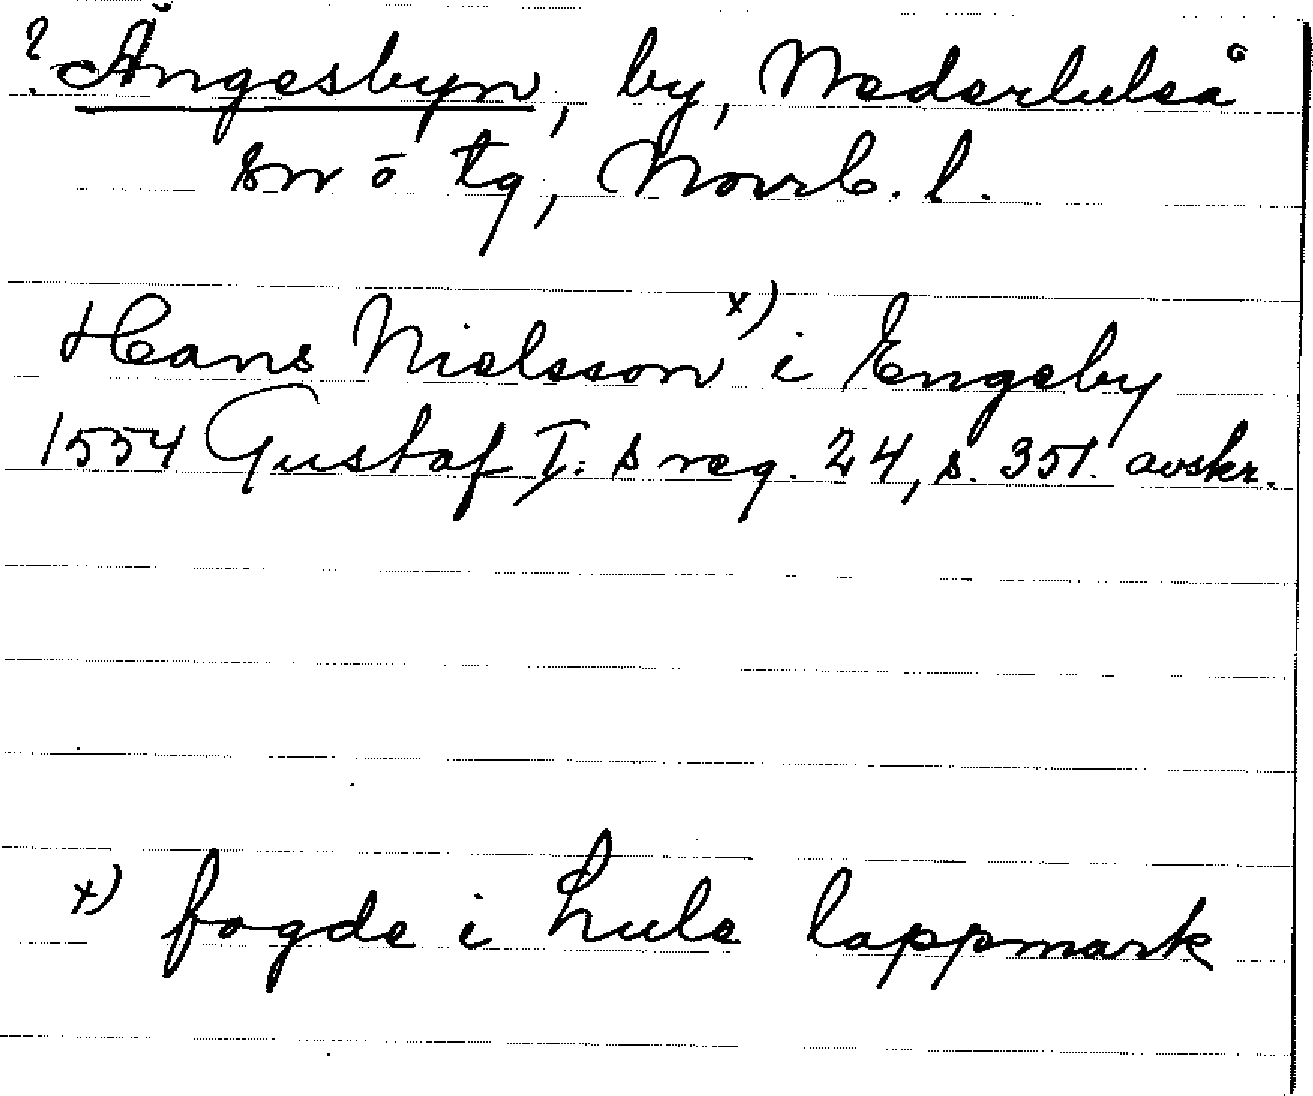 ? Ängesbyn, by, Nederluleå
sn o tg, Norrb. l.
Hans Nielsson x) i Engeby
1554 Gustaf I:s reg. 24, s. 351. avskr.
x) fogde i Lule lappmark